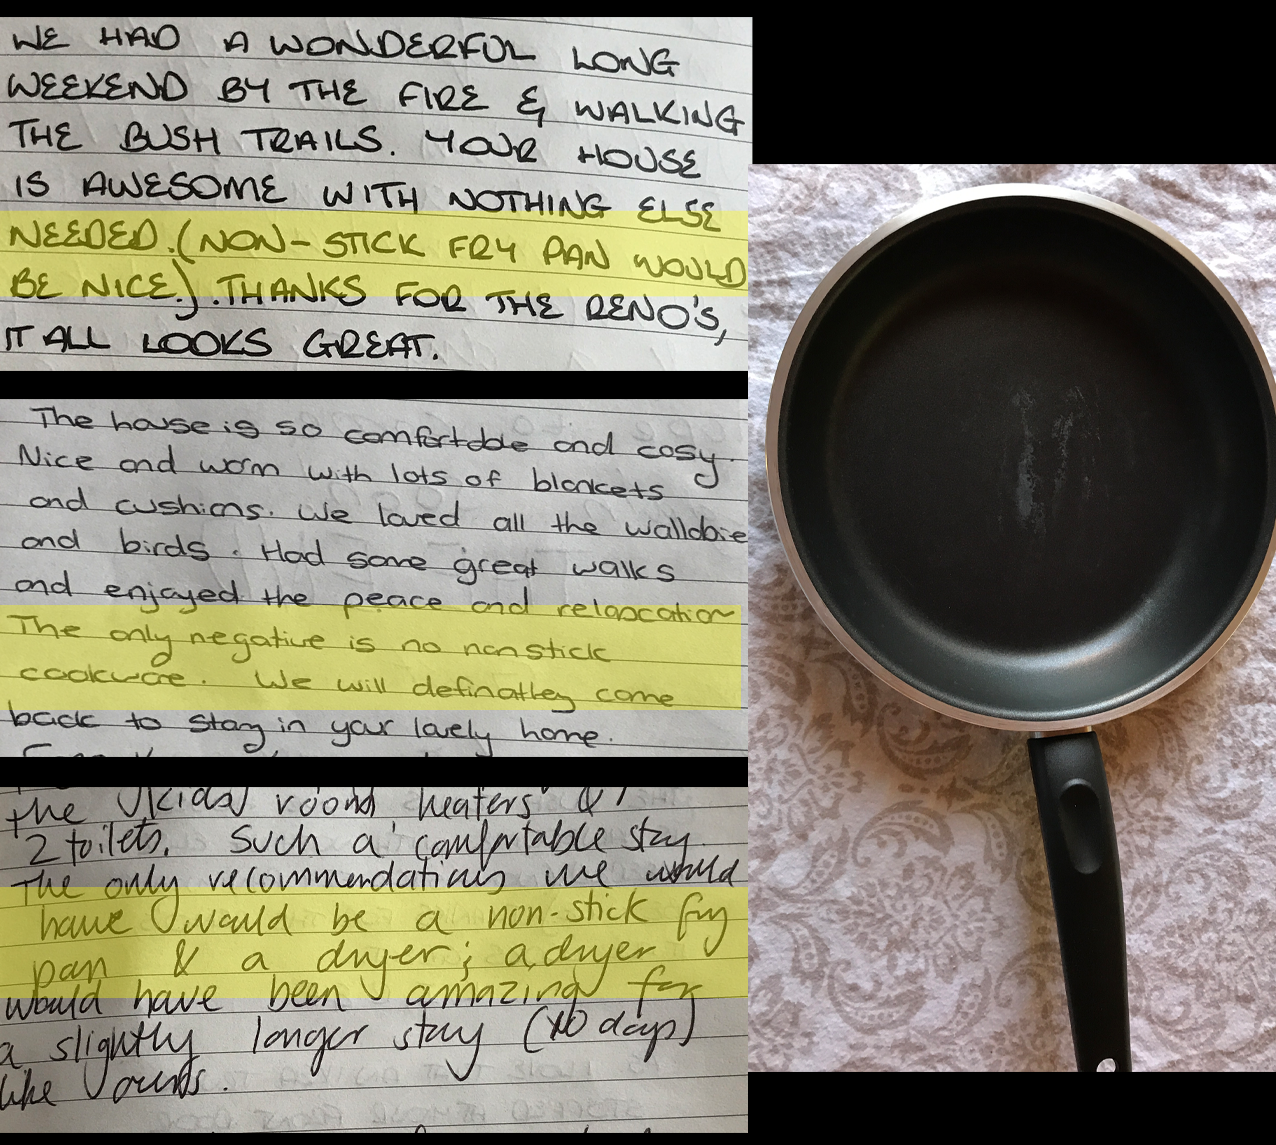 WE HAD A WONDERFUL LONG
WEEKEND BY THE FIRE & WALKING
THE BUSH TRAILS. YOUR HOUSE
IS AWESOME WITH NOTHING ELSE
NEEDED.(NON-STICK FRY PAN WOULD
BE NICE.).THANKS FOR THE RENO'S,
IT ALL LOOKS GREAT.
The house is so comfortable and cosy.
Nice and warm with lots of blankets
and cushions. We loved all the wallabie
and birds. Had some great walks
and enjoyed the peace and relaxation
The only negative is no nonstick
cookware. We will definatley come
back to stay in your lovely home.
the room heaters &
2 toilets. Such a comfortable stay.
The only recommendations we would
have would be a non-stick fry
pan & a dryer; a dryer
would have been amazing for
a slightly longer stay (10 days)
like ours.